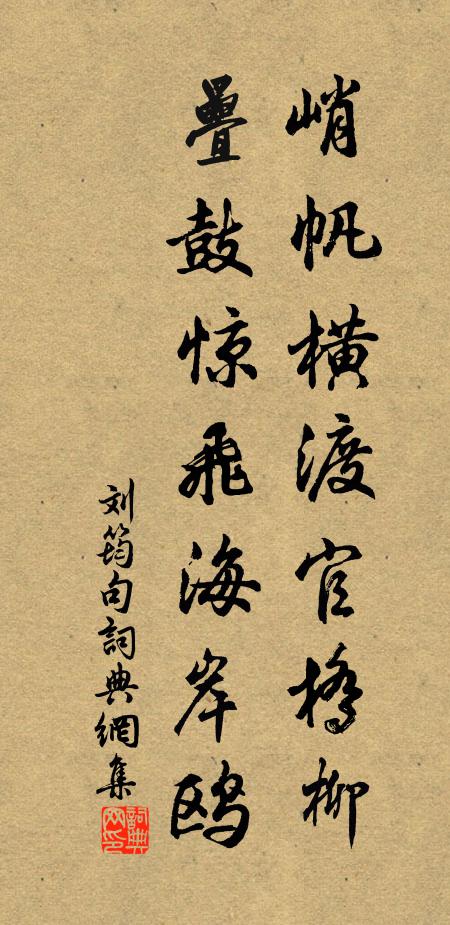 峭帆橫渡官橋柳
疊鼓惊飛海岸鸥
刘筠句詞典網集
詞典网印